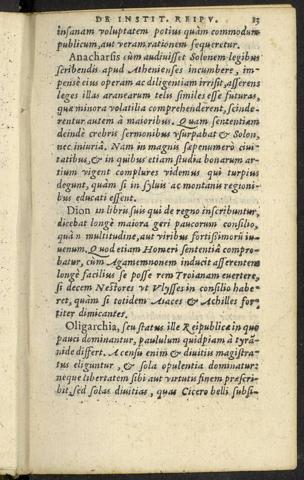 DE INSTIT. REIPV. 83
insanam voluptatem potius quàm commodum
publicum, aut veram rationem sequeretur.
Anacharsis cùm audiuisset Solonem legibus
scribendis apud Athenienses incumbere, im-
pensè eius operam ac diligentiam irrisit, asserens
leges illas aranearum telis similes esse futuras,
quæ minora volatilia comprehenderent, scinde-
rentur autem à maioribus. Quam sententiam
deindè crebris sermonibus vsurpabat & Solon,
nec iniuriâ. Nam in magnis sæpenumerò ciui-
tatibus, & in quibus etiam studia bonarum ar-
tium vigent complures videmus qui turpius
degunt, quàm si in syluis ac montanis regioni-
bus educati essent.
Dion in libris suis qui de regno inscribuntur,
dicebat longè maiora geri paucorum consilio,
quã n multitudine, aut viribus fortissimorũ iu-
uenum. Quod etiam Homeri sententiâ compro-
batur, cùm Agamemnonem inducit asserentem
longè facilius se posse rem Troianam euertere,
si decem Nestores vt Vlysses in consilio habe-
ret, quàm si totidem Aiaces & Achilles for-
titer dimicantes.
Oligarchia, seu status ille Reipublicæ in quo
pauci dominantur, paululum quidpiam à tyrã-
nide differt. A censu enim & diuitiis magistra-
tus eliguntur, & sola opulentia dominatur:
neque libertatem sibi aut virtutis finem præscri-
bit, sed solas diuitias, quas Cicero belli subsi-